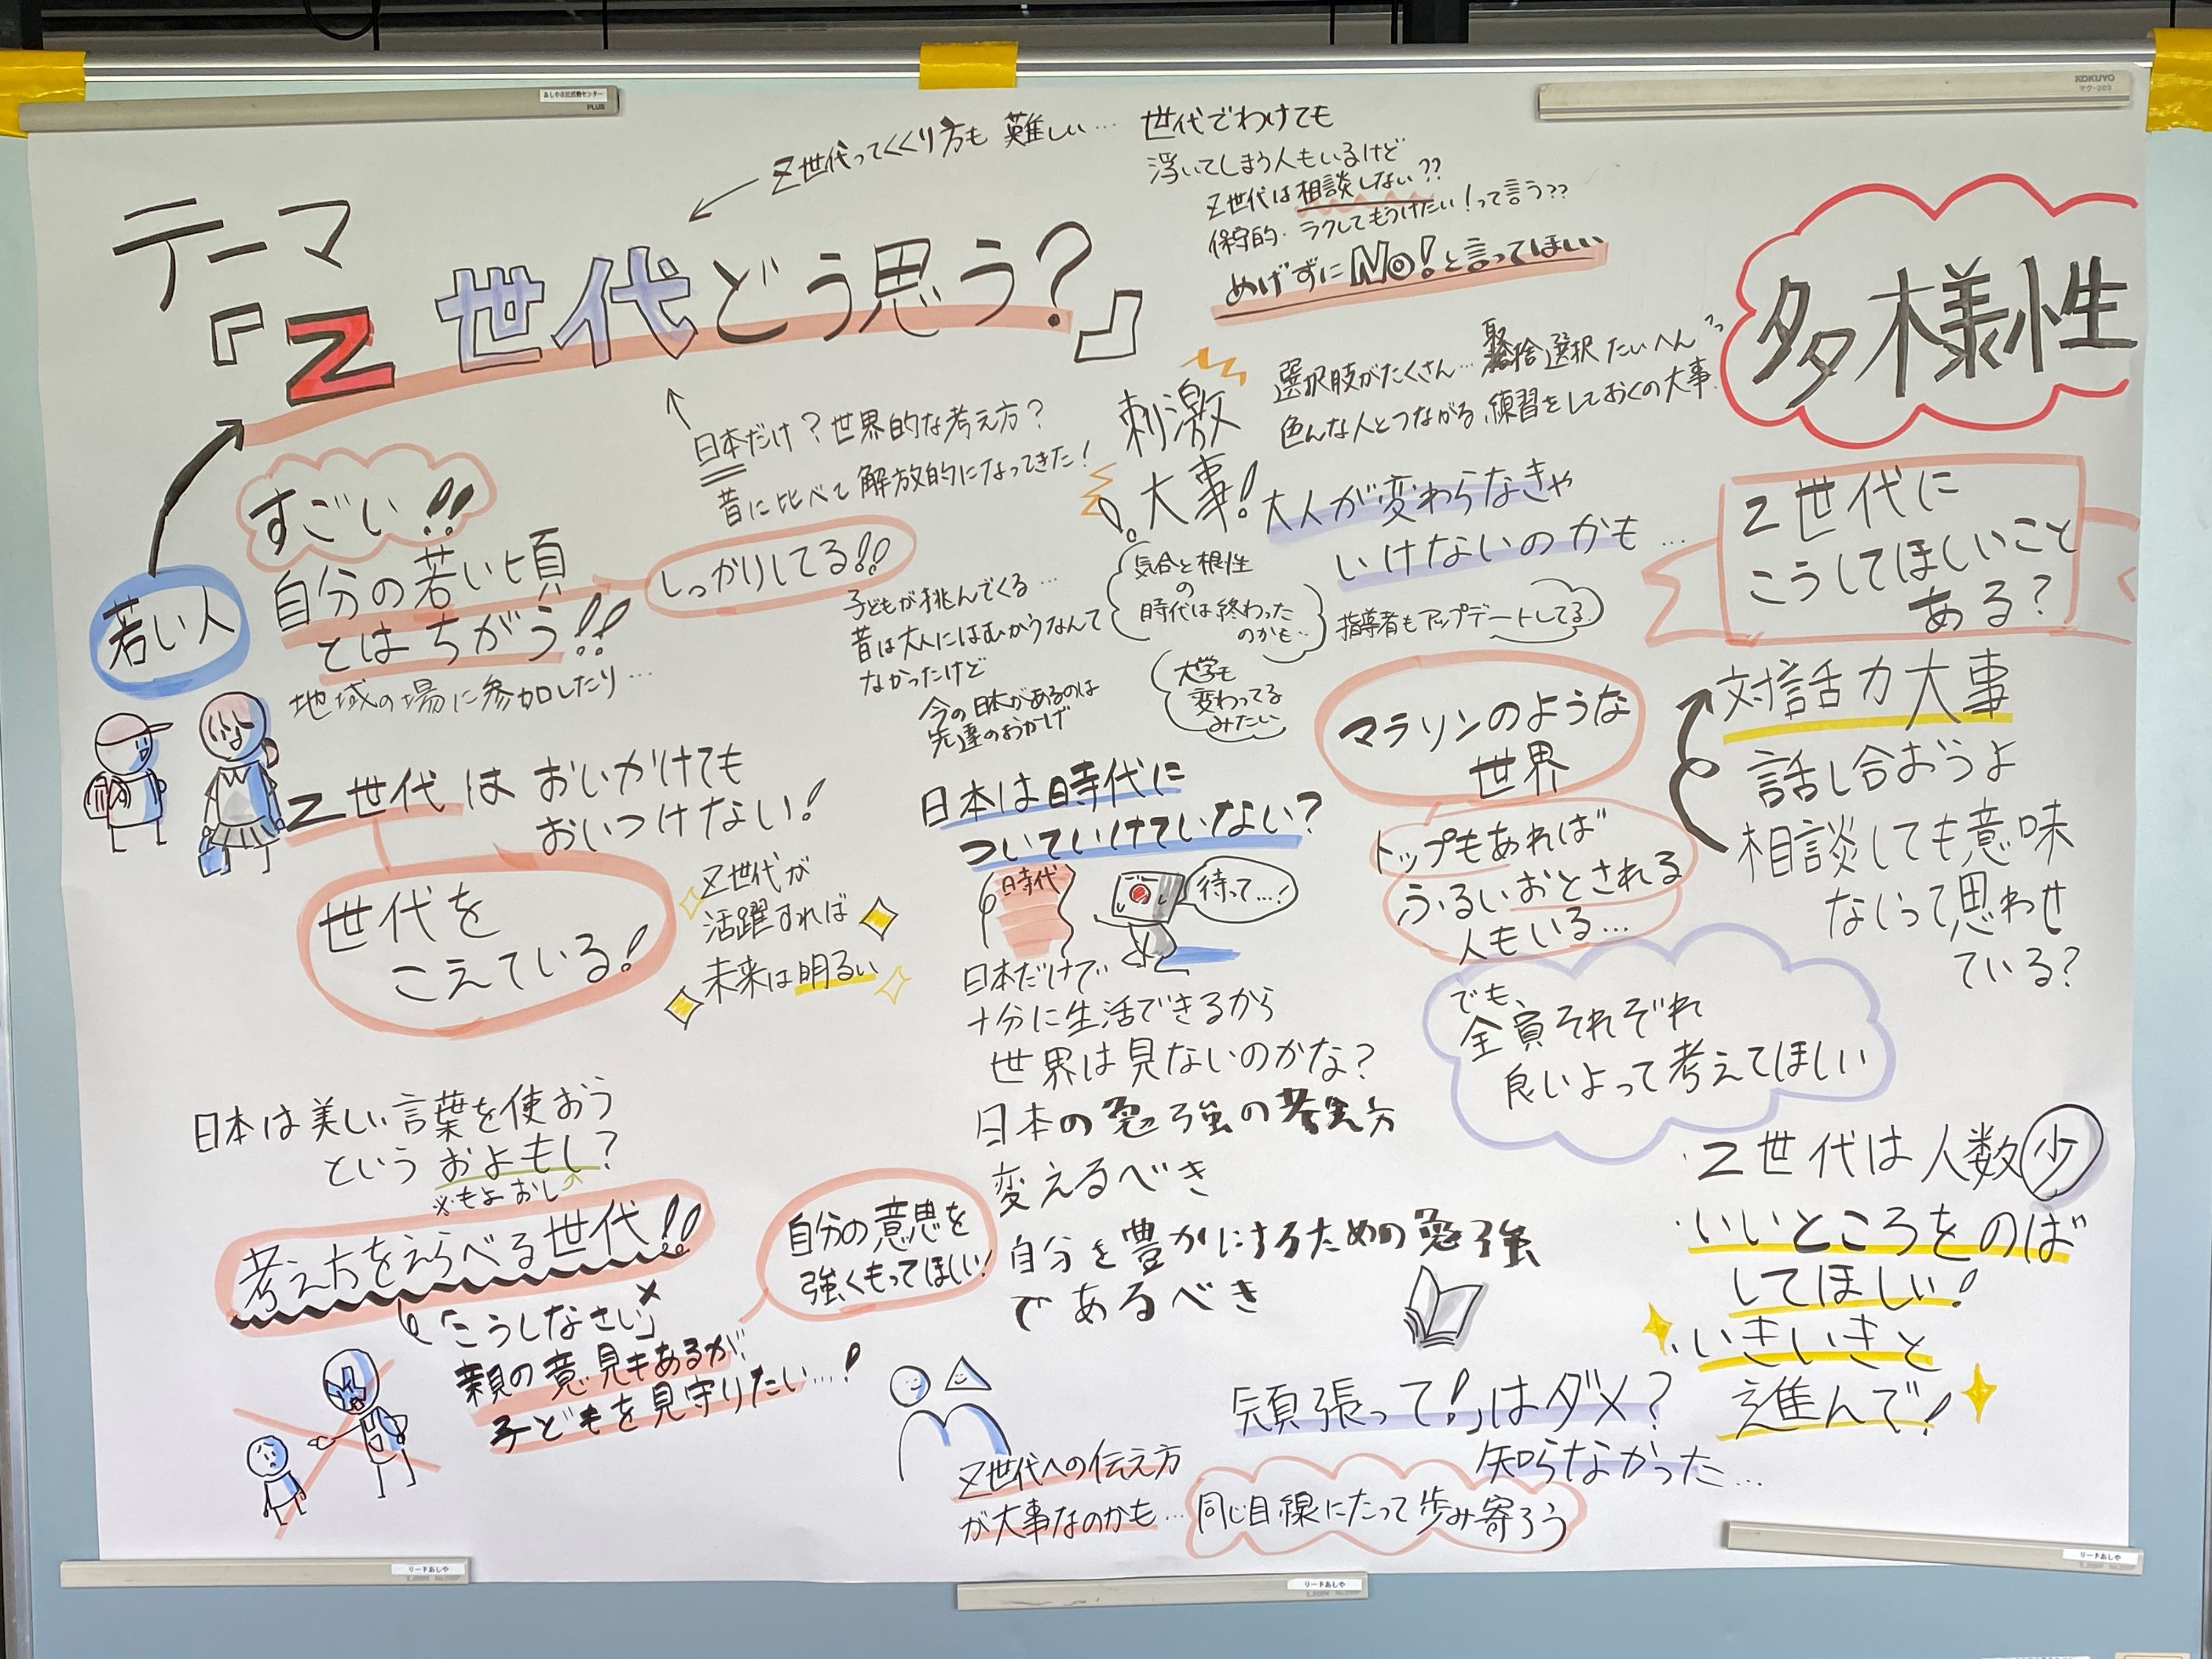 あしや市民活動センター
PLUS
KOKUYO
マグ-203
テーマ
『Z世代どう思う?』
Z世代ってくくり方も 難しい…
世代でわけても
浮いてしまう人もいるけど
Z世代は相談しない??
保守的・ラクしてもうけたい!って言う??
めげずにNo!と言ってほしい
多様性
日本だけ?世界的な考え方?
昔に比べて解放的になってきた!
刺激
大事!
選択肢がたくさん…取捨選択 たいへん
色んな人とつながる、練習をしておくの大事.
大人が変わらなきゃ
いけないのかも…
気合と根性
の
時代は終わった
のかも…
指導者もアップデートしてる
大学も
変わってる
みたい
若い人
すごい!!
自分の若い頃
とは ちがう!!
地域の場に参加したり…
しっかりしてる!!
子どもが挑んでくる…
昔は大人にはむかうなんて
なかったけど
今の日本があるのは
先達のおかげ
Z世代に
こうしてほしいこと
ある?
対話力大事
話し合おうよ
相談しても意味
ないって思わせ
ている?
マラソンのような
世界
トップもあれば
ふるいおとされる
人もいる…
でも、
全員それぞれ
良いよって考えてほしい
Z世代は おいかけても
おいつけない!
世代を
こえている!
Z世代が
活躍すれば
未来は明るい
日本は時代に
ついていけていない?
時代
待って…!
日本だけで
十分に生活できるから
世界は見ないのかな?
日本の勉強の考え方
変えるべき
自分を豊かにするための勉強
であるべき
日本は美しい言葉を使おう
という およもし?
※もよおし
考え方をえらべる世代!!
「こうしなさい」×
親の意見もあるが、
子どもを見守りたい…!
自分の意思を
強くもってほしい!
Z世代は人数少
・いいところをのば
してほしい!
・いきいきと
進んで!
頑張って!」はダメ?
知らなかった…
Z世代への伝え方
が大事なのかも…
同じ目線にたって歩み寄ろう
リードあしや
リードあしや
リードあしや